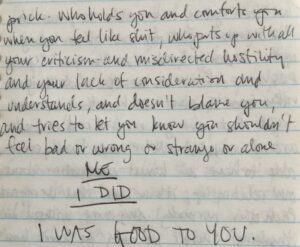 prick. Who holds you and comforts you
when you feel like shit, who puts up with all
your criticism and misdirected hostility
and your lack of consideration and
understands, and doesn't blame you,
and tries to let you know you shouldn't
feel bad or wrong or strange or alone
ME
I DID
I WAS GOOD TO YOU.